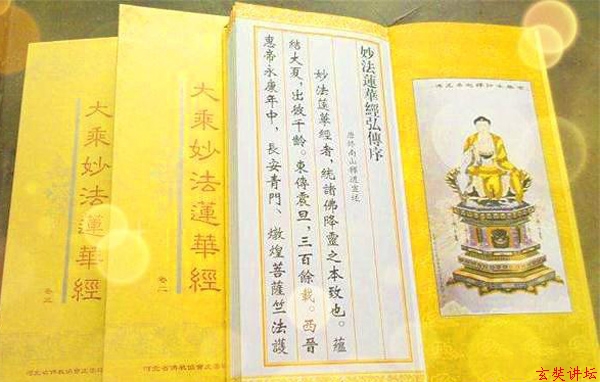 妙法蓮華經弘傳序
唐終南山釋道宣述
妙法蓮華經者，統諸佛降靈之本致也。蘊
結大夏，出彼千齡。東傳震旦，三百餘載。西晉
惠帝永康年中，長安青門、燉煌菩薩竺法護
大乘妙法蓮華經
卷二
河北省佛教協會
大乘妙法蓮華經
卷三
河北省佛教協會
玄奘讲坛